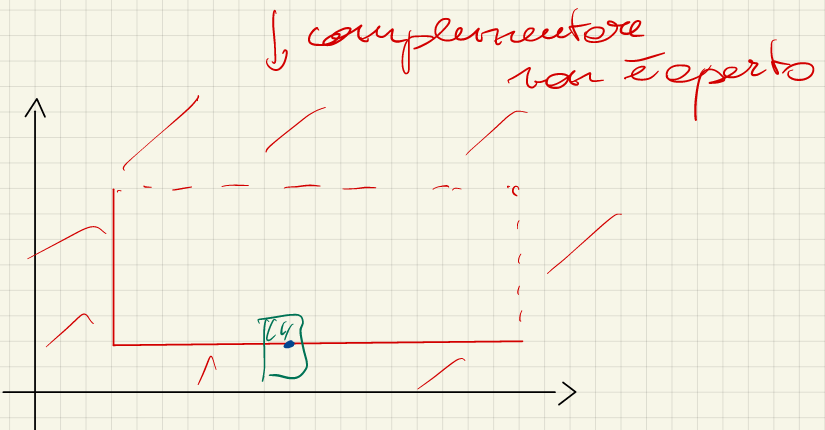 Il complementare
non è aperto